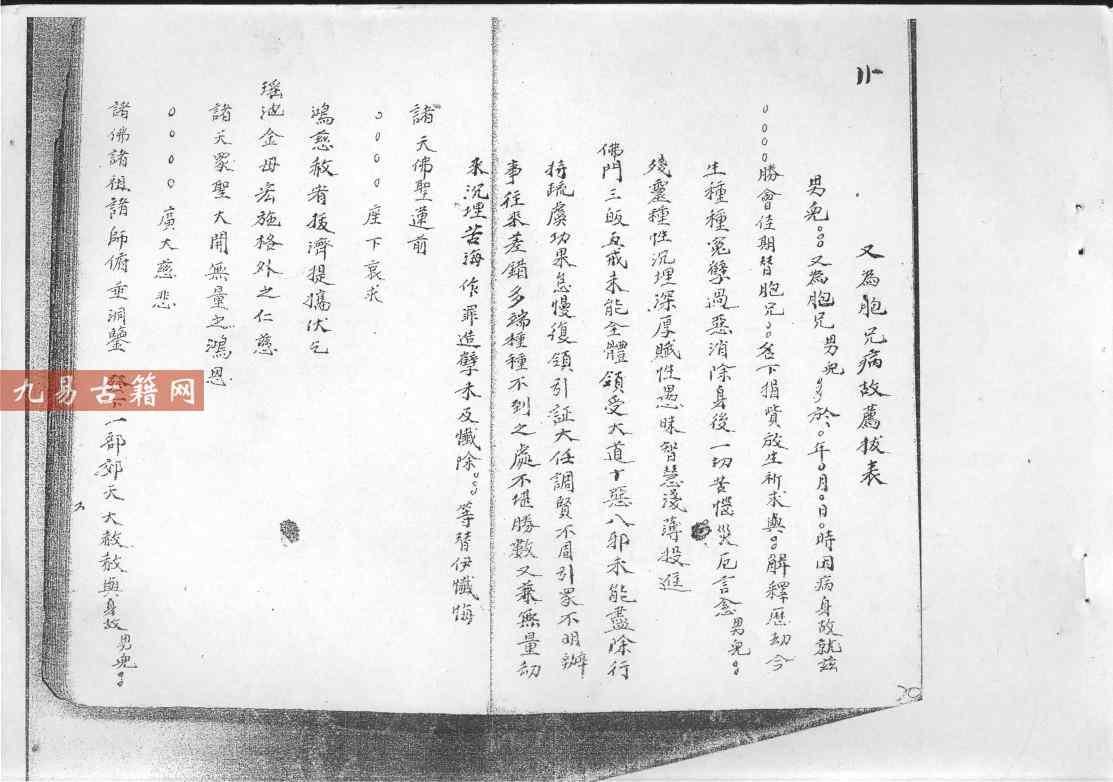 又為胞兄病故薦拔表
男兒○○又為胞兄男兒○○於○年○月○日○時因病身故就茲
○○○○勝會佳期替胞兄○○名下捐貲放生祈求與○解釋歷劫今
生種種冤孽過惡消除身後一切苦惱災厄言念男兒○○
殘靈種性沉埋深厚賦性愚昧智慧淺薄投進
佛門三皈五戒未能全體領受大道十惡八邪未能盡除行
持疏虞功果怠慢復領引証大任調賢不周引眾不明辦
事往來差錯多端種種不到之處不堪勝數又兼無量劫
來沉埋苦海作罪造孽未及懺除○○等替伊懺悔
諸天佛聖蓮前
○○○○座下哀求
鴻慈赦宥援濟提攜伏乞
瑶池金母宏施格外之仁慈
諸天眾聖大開無量之鴻恩
○○○○廣大慈悲
諸佛諸祖諸師俯垂洞鑒
一部郊天大赦赦與身故男兒○○
20
九易古籍网